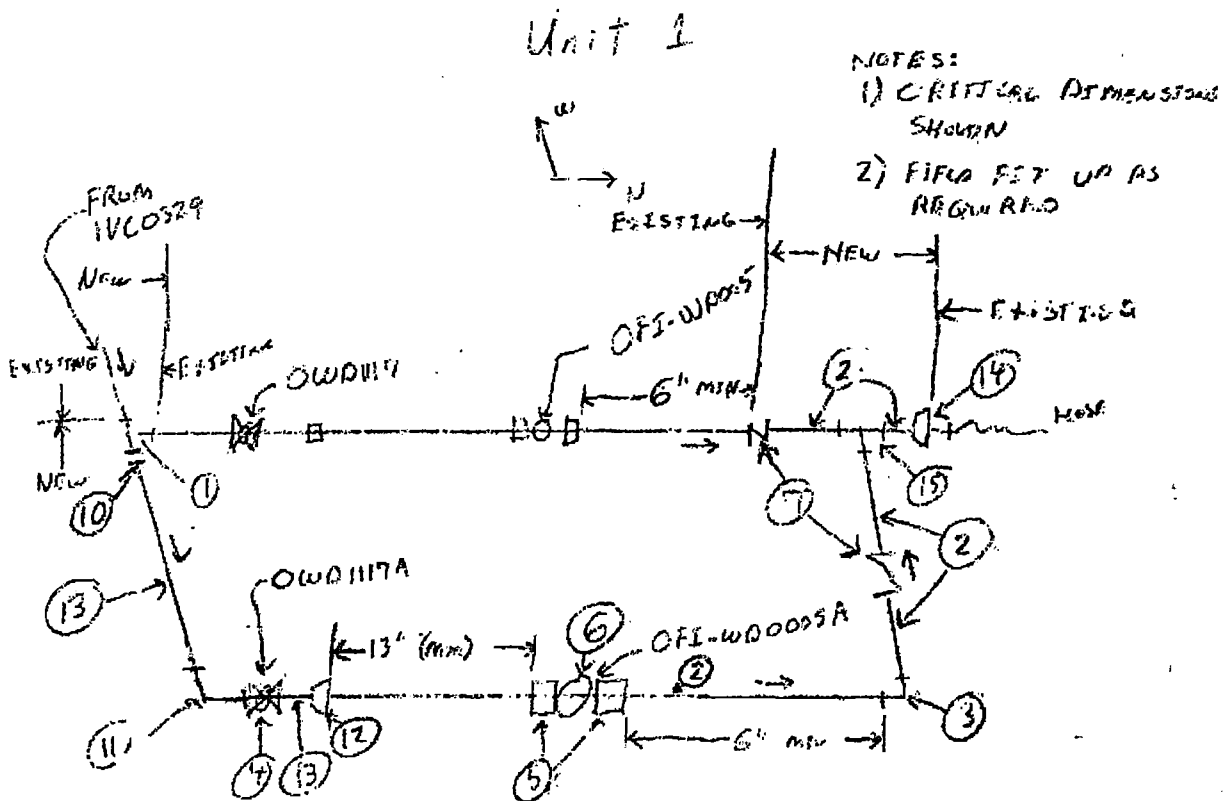 Unit 1
NOTES:
1) CRITICAL DIMENSIONS
SHOWN
2) FIELD FIT UP AS
REQUIRED
W
N
FROM
1VC0529
NEW
EXISTING
EXISTING
NEW
OWD1117
EXISTING
NEW
EXISTING
6" MIN
2
14
HOSE
10
1
7
15
2
13
OWD1117A
13" (MIN)
6
OFI-WD0005A
2
11
4
13
12
5
6" MIN
3